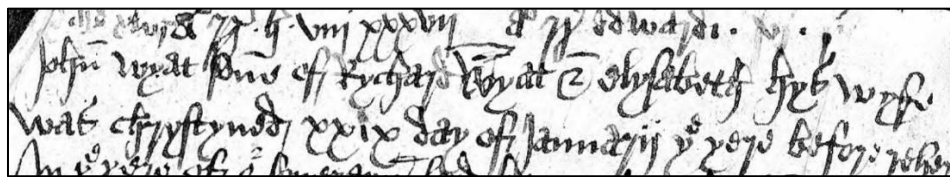 R. h. viii xxxvii a° R edwardi. vi.
John wyat sone of Rychard Wyat & elysabeth hys wyfe
was chrystyned xxix day of Januarii yᵉ yere before reher
In yᵉ yere of